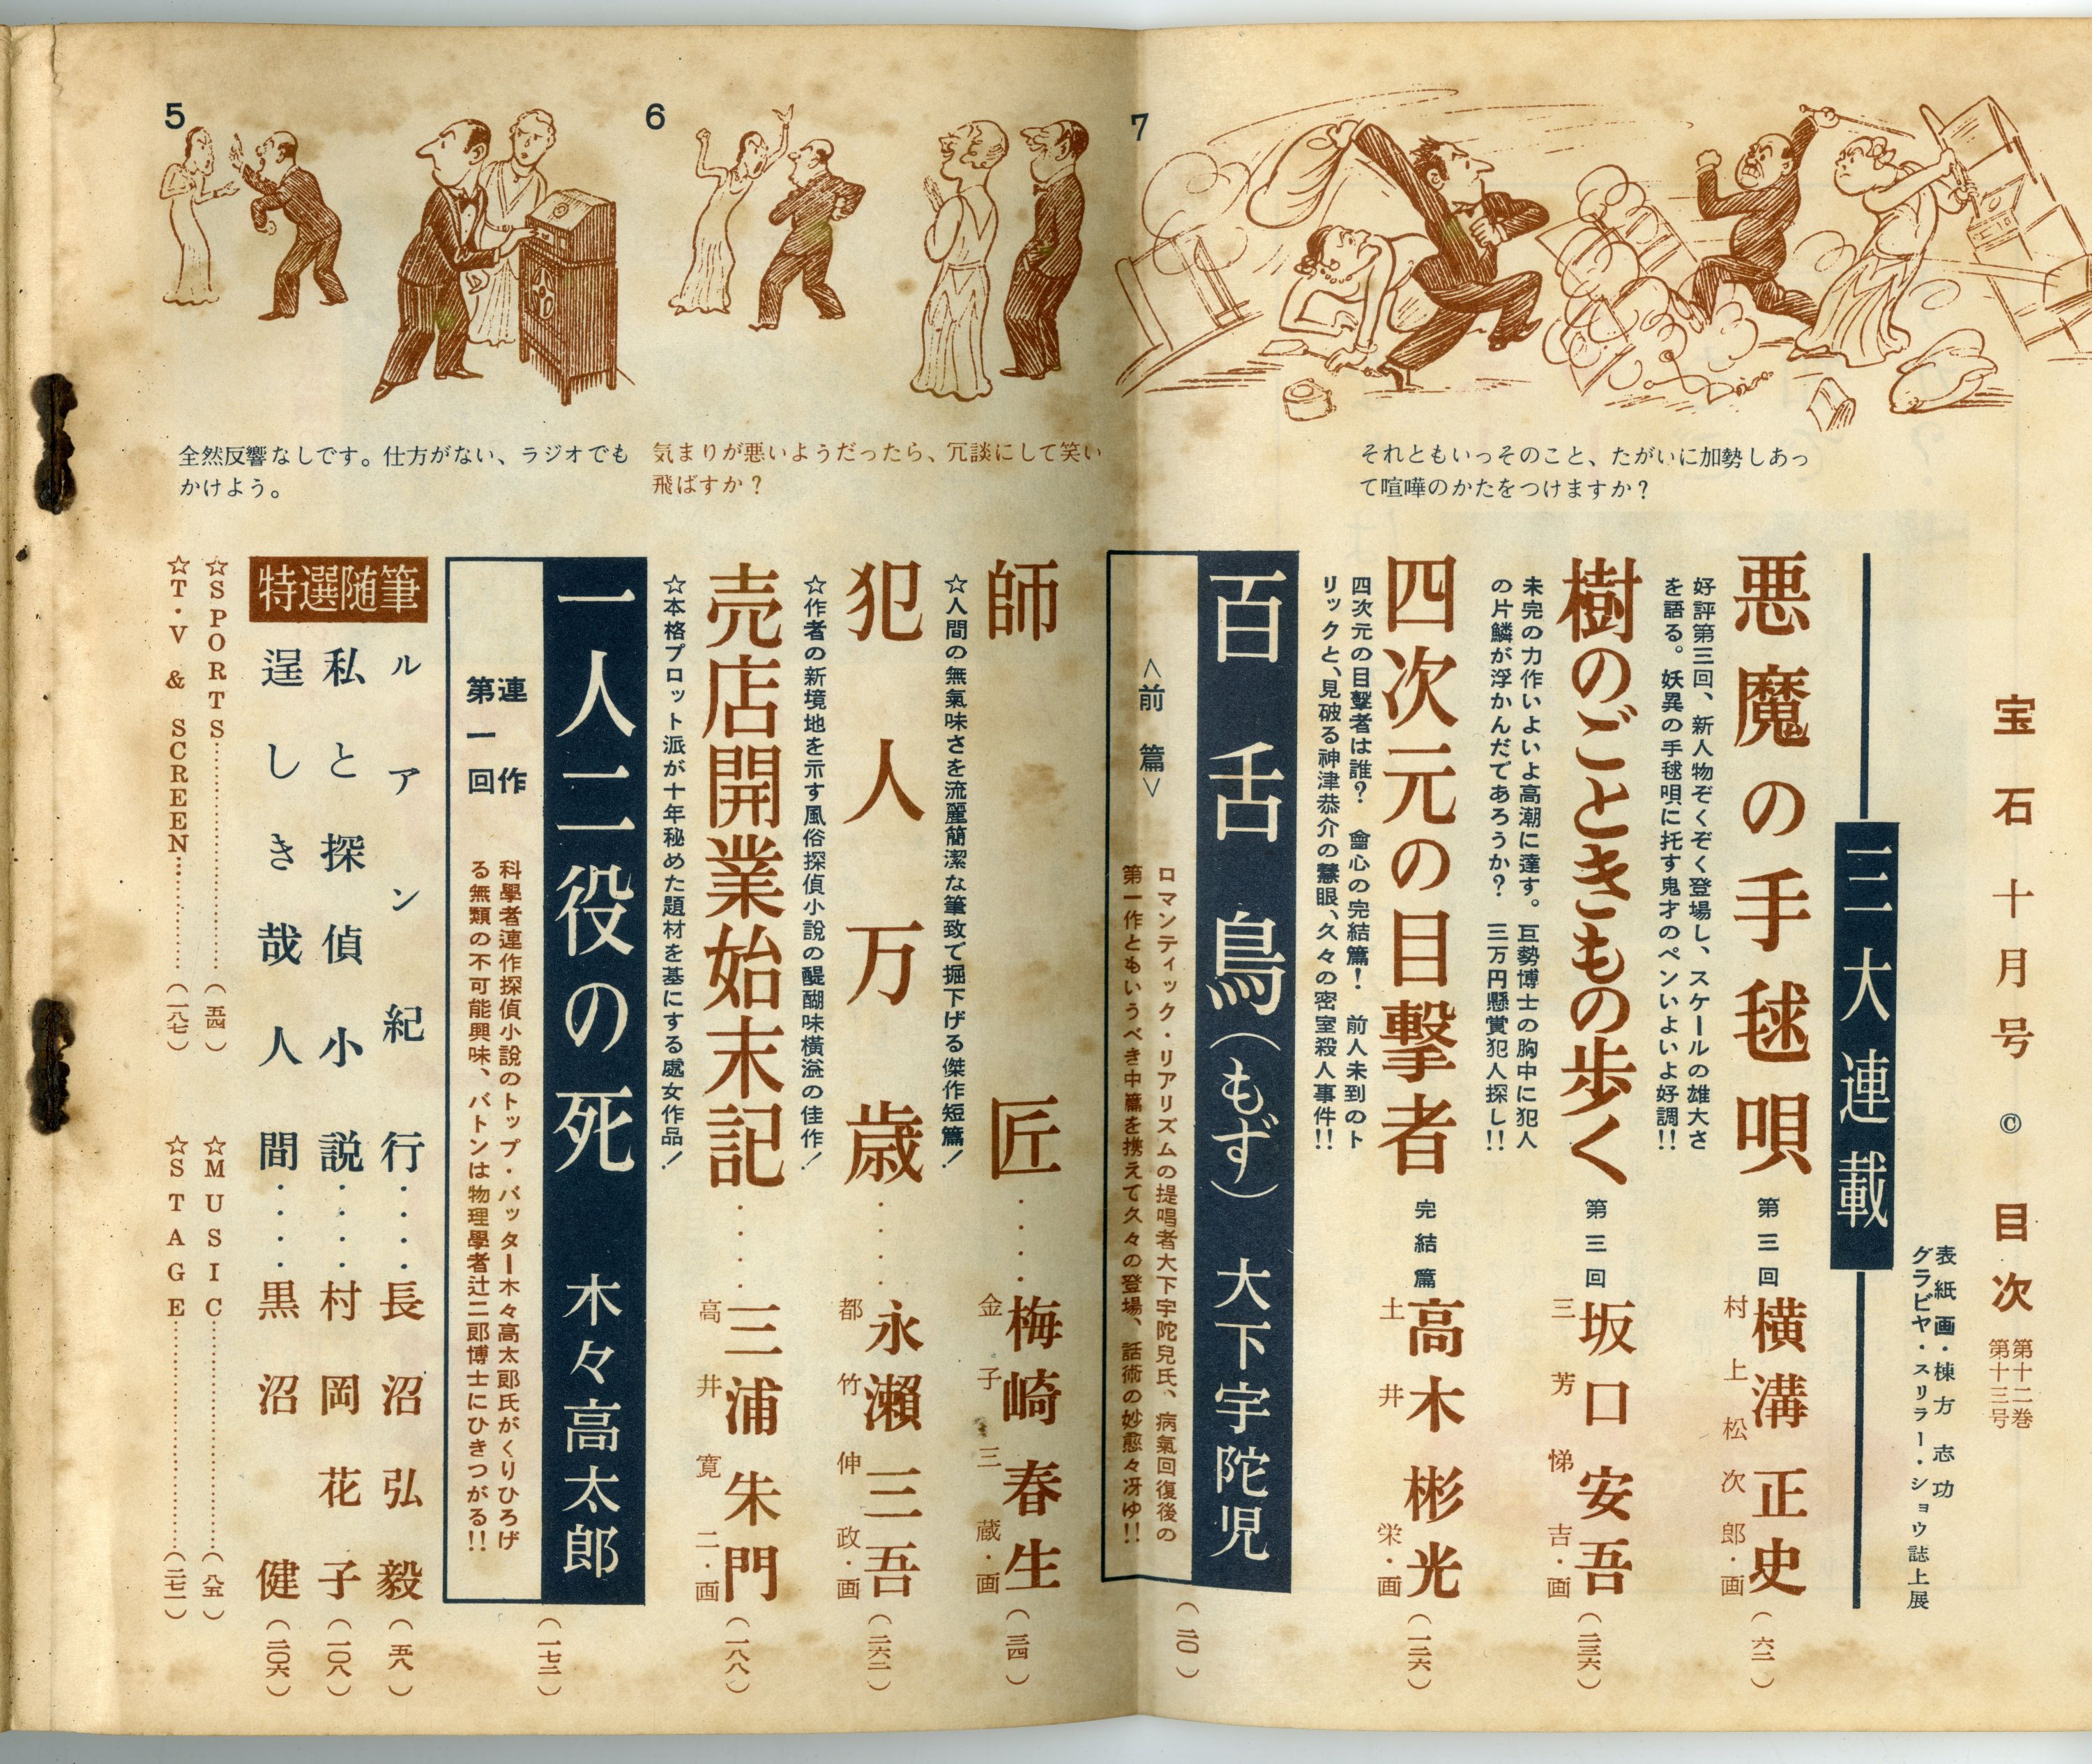 宝石 十月号 © 目次 第十二巻 第十三号
表紙画・棟方志功
グラビヤ・スリラー・ショウ誌上展
三大連載
悪魔の手毬唄 第三回 横溝正史 (六二)
村上松次郎・画
好評第三回、新人物ぞくぞく登場し、スケールの雄大さ
を語る。妖異の手毬唄に托す鬼才のペンいよいよ好調!!
樹のごときもの歩く 第三回 坂口安吾 (二三六)
三芳悌吉・画
未完の力作いよいよ高潮に達す。巨勢博士の胸中に犯人
の片鱗が浮かんだであろうか? 三万円懸賞犯人探し!!
四次元の目撃者 完結篇 高木彬光 (一二六)
土井栄・画
四次元の目撃者は誰? 會心の完結篇! 前人未到のト
リックと、見破る神津恭介の慧眼、久々の密室殺人事件!!
百舌鳥(もず) 大下宇陀児 (二〇)
<前篇>
ロマンティック・リアリズムの提唱者大下宇陀兒氏、病氣回復後の
第一作ともいうべき中篇を携えて久々の登場、話術の妙愈々冴ゆ!!
師匠‥‥梅崎春生 (三四)
金子三蔵・画
☆人間の無氣味さを流麗簡潔な筆致で掘下げる傑作短篇!
犯人万歳‥‥永瀬三吾 (二六二)
都竹伸政・画
☆作者の新境地を示す風俗探偵小説の醍醐味横溢の佳作!
売店開業始末記‥‥三浦朱門 (一八八)
高井寛二・画
☆本格プロット派が十年秘めた題材を基にする處女作品!
一人二役の死 木々高太郎 (一七二)
連作
第一回
科學者連作探偵小説のトップ・バッター木々高太郎氏がくりひろげ
る無類の不可能興味、バトンは物理學者辻二郎博士にひきつがる!!
特選随筆
ルアン紀行‥‥長沼弘毅 (五八)
私と探偵小説‥‥村岡花子 (一〇八)
逞しき哉人間‥‥黒沼健 (二〇六)
☆SPORTS……(五四)
☆MUSIC……(八五)
☆T・V & SCREEN……(一八七)
☆STAGE……(二七一)
7
それともいっそのこと、たがいに加勢しあっ
て喧嘩のかたをつけますか?
6
気まりが悪いようだったら、冗談にして笑い
飛ばすか?
5
全然反響なしです。仕方がない、ラジオでも
かけよう。